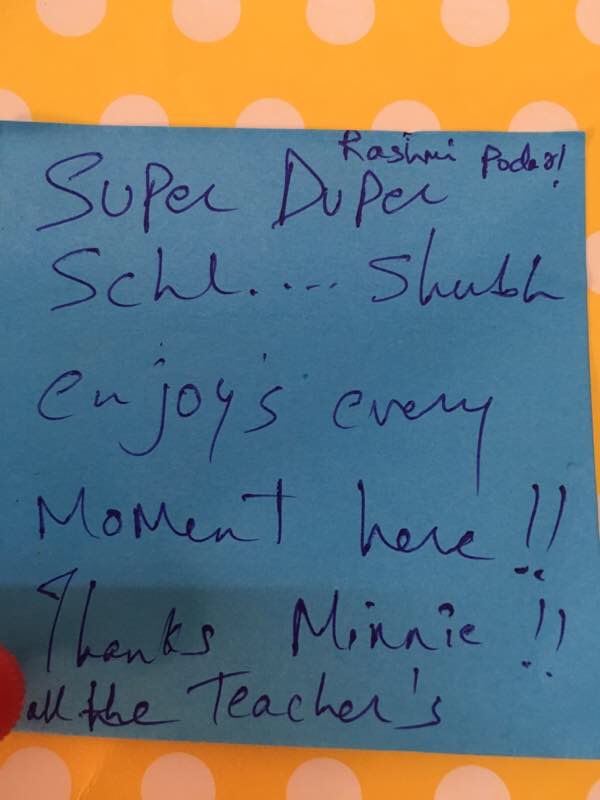 Rashmi Podar!
Super Duper
Schl.... Shubh
enjoy's every
Moment here!!
Thanks Minnie!!
all the Teacher's